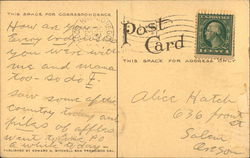 THIS SPACE FOR CORRESPONDENCE
How are you
you were with
me and mama
too - so do I
saw some of the
country today and
piles of apples
went
a while today -
PUBLISHED BY EDWARD H. MITCHELL, SAN FRANCISCO, CAL.
Post Card
THIS SPACE FOR ADDRESS ONLY
Alice Hatch
636 front st
Salem
Oregon